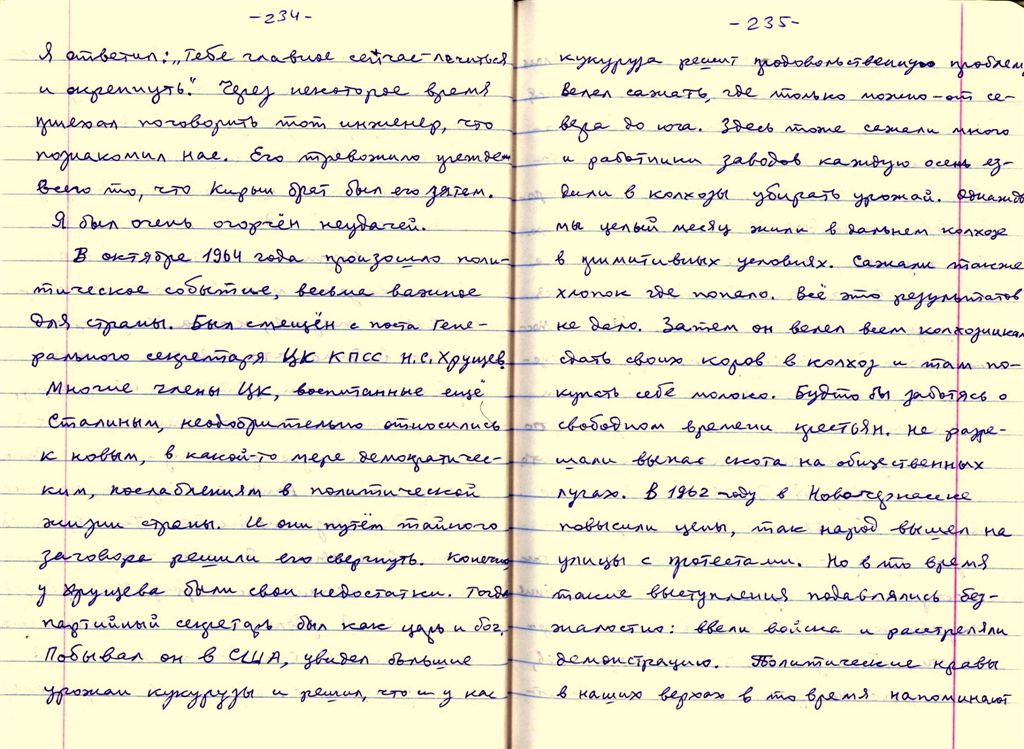 -234-
Я ответил: „Тебе главное сейчас лечиться
и окрепнуть." Через некоторое время
приехал поговорить тот инженер, что
познакомил нас. Его тревожило прежде
всего то, что Кирин брат был его зятем.
Я был очень огорчён неудачей.
В октябре 1964 года произошло поли-
тическое событие, весьма важное
для страны. Был смещён с поста Гене-
рального секретаря ЦК КПСС Н.С. Хрущев.
Многие члены ЦК, воспитанные ещё
Сталиным, неодобрительно относились
к новым, в какой-то мере демократичес-
ким, послаблениям в политической
жизни страны. И они путём тайного
заговора решили его свергнуть. Конечно
у Хрущева были свои недостатки. Тогда
партийный секретарь был как царь и бог.
Побывал он в США, увидел большие
урожаи кукурузы и решил, что и у нас
-235-
кукуруза решит продовольственную проблему
Велел сажать, где только можно – от се-
вера до юга. Здесь тоже сажали много
и работники заводов каждую осень ез-
дили в колхозы убирать урожай. Однажды
мы целый месяц жили в дальнем колхозе
в примитивных условиях. Сажали также
хлопок где попало. Всё это результатов
не дало. Затем он велел всем колхозникам
сдать своих коров в колхоз и там по-
купать себе молоко. Будто бы заботясь о
свободном времени крестьян. Не разре-
шали выпас скота на общественных
лугах. В 1962 году в Новочеркасске
повысили цены, так народ вышел на
улицы с протестами. Но в то время
такие выступления подавлялись без-
жалостно: ввели войска и расстреляли
демонстрацию. Политические нравы
в наших верхах в то время напоминают